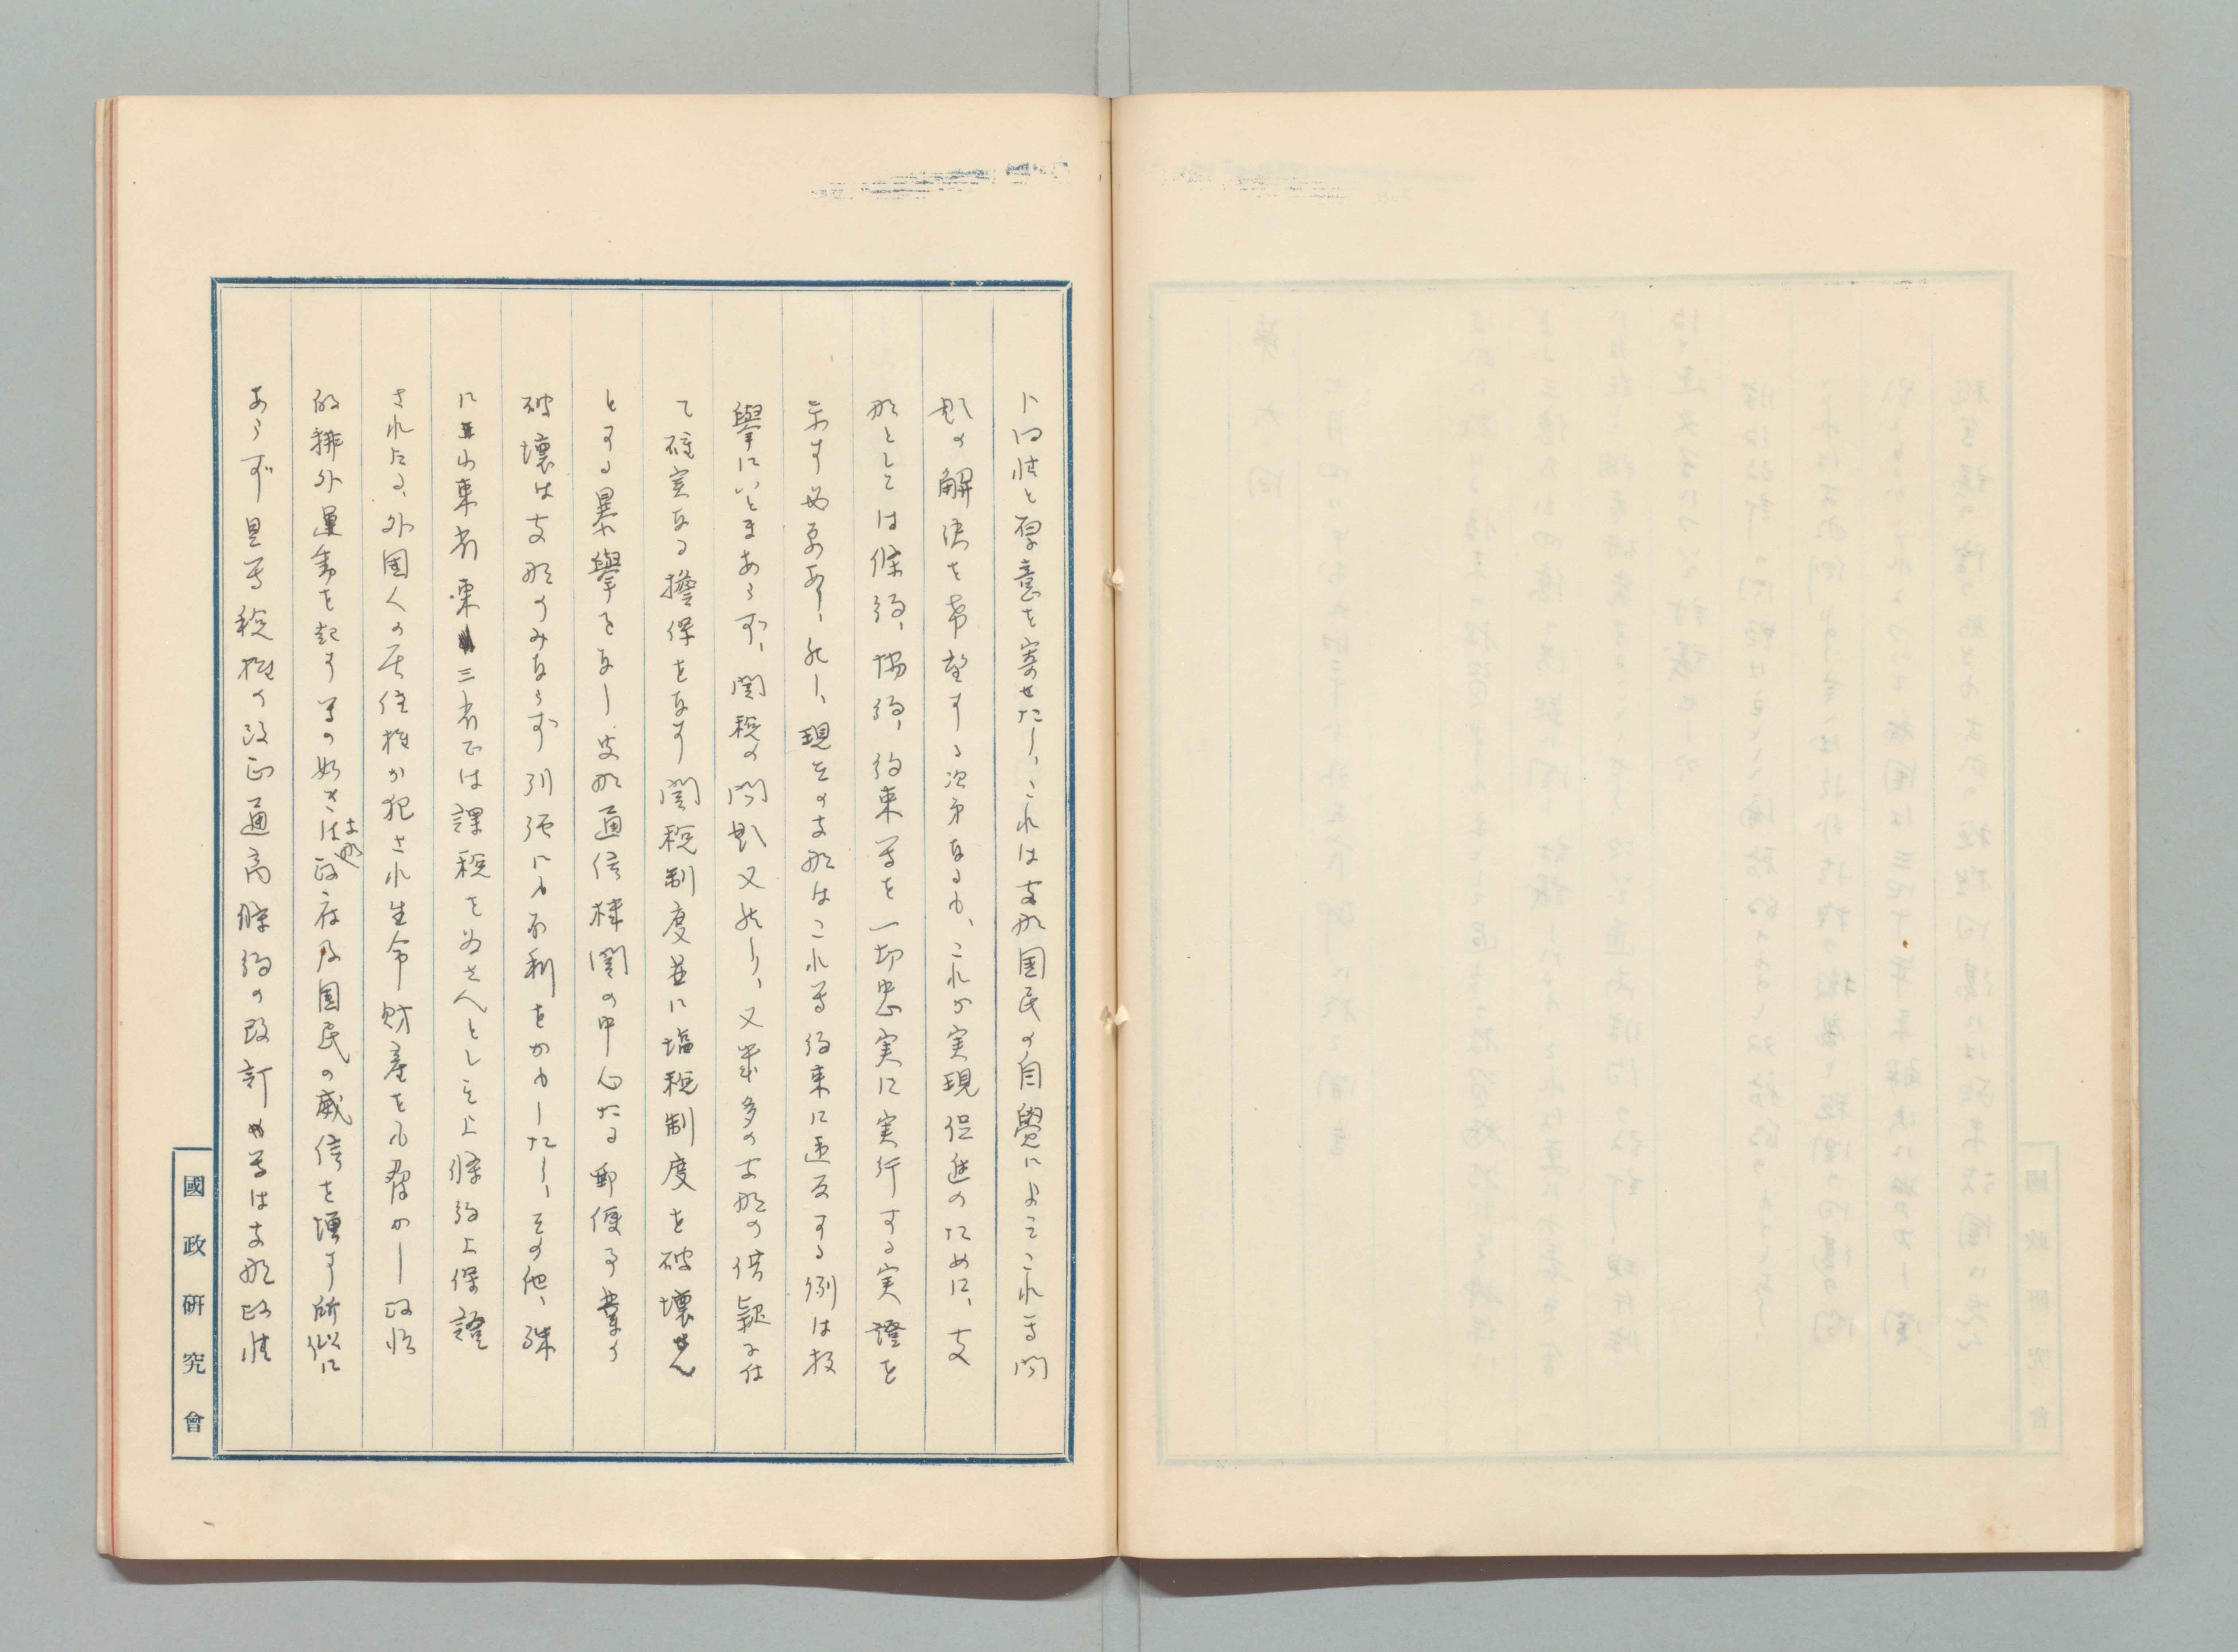 に同情と厚意を寄せたし、これは支那国民の自覺によってこれ等問
題の解決を希望する次第なるも、これが実現促進のために、支
那としては條約、協約、約束等を一切忠実に実行する実證を
示す必要あり、然し、現在の支那はこれ等約束に違反する例は枚
擧にいとまあらず、関税の問題又然り、又幾多の支那の借款に付
て確実なる擔保をなす関税制度並に塩税制度を破壊せん
とする暴擧をなし、支那通信機関の中心たる郵便事業の
破壊は支那のみならず列強にも不利をかもしたし、その他、殊
に山東省東三省では課税を為さんとし之上條約上保證
されたる、外国人の居住権が犯され生命財産をも脅かし政治
的排外運動を起す等の如きは支那政府及国民の威信を墜す所似に
あらず且等税権の改正通商條約の改訂等は支那政情
國政研究會